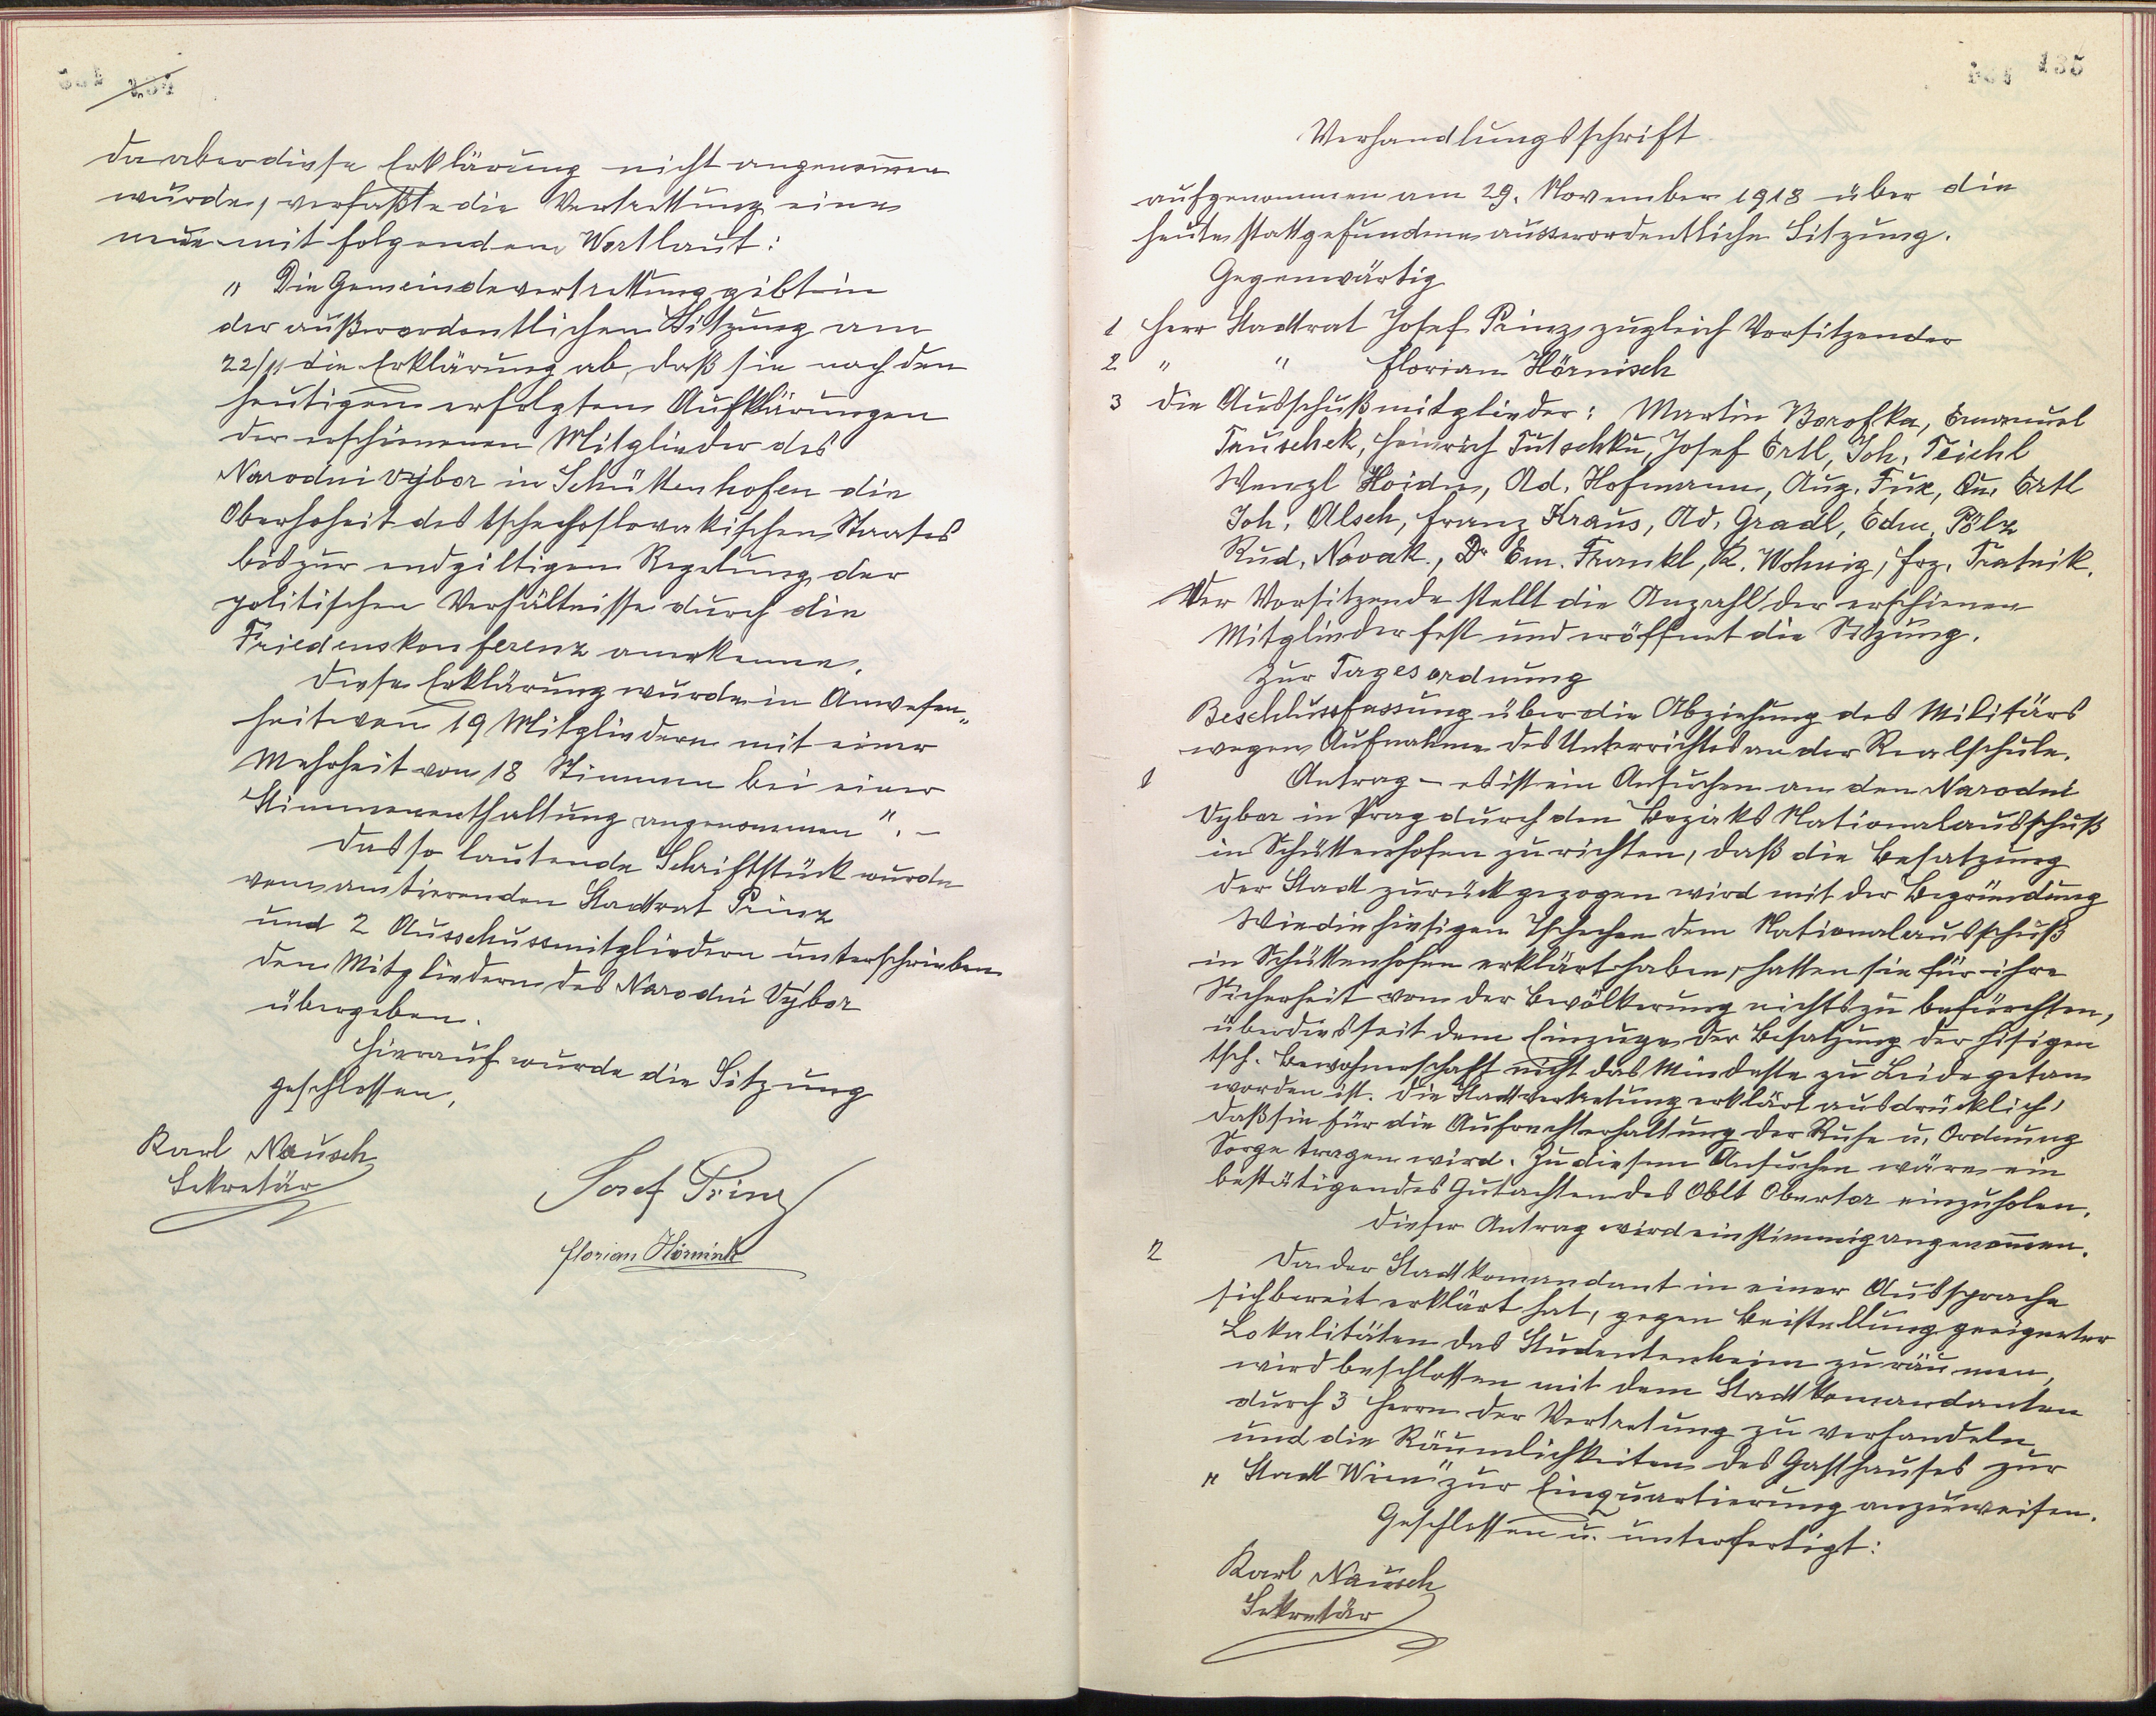 da aber diese Erklärung nicht angenom̅en
wurde, verfaßte die Vertrettung eine
neue mit folgendem Wortlaut:
„ Die Gemeindevertrettung gibt in
der außerordentlichen Sitzung am
22/11 die Erklärung ab, daß sie nach den
heutigen erfolgten Aufklärungen
der erschienenen Mitglieder des
Narodni výbor in Schüttenhofen die
Oberhoheit des tschechoslovakischen Staates
bis zur endgiltigen Regelung der
politischen Verhältnisse durch die
Friedenskonferenz anerkenne.
Diese Erklärung wurde in Anwesen„
heit von 19 Mitgliedern mit einer
Mehrheit von 18 Stimmen bei einer
Stimmenenthaltung angenommen ". –
Das so lautende Schriftstück wurde
vom amtierenden Stadtrat Prinz
und 2 Ausschussmitgliedern unterschrieben
den Mitgliedern des Narodni Výbor
übergeben.
Hierauf wurde die Sitzung
geschlossen.
Karl Nausch
Sekretär
Josef Prinz
Florian Hörnisch
135
Verhandlungsschrift
aufgenommen am 29. November 1918 über die
heute stattgefundene ausserordentliche Sitzung.
Gegenwärtig
1 Herr Stadtrat Josef Prinz zugleich Vorsitzender
2 " " Florian Hörnisch
3 die Ausschußmitglieder: Martin Borofka, Emanuel
Tauschek, Heinrich Tutschku, Josef Ertl, Joh. Teichl
Wenzl Hoidn, Ad. Hofmann, Aug. Fux, Qu. Ertl
Joh. Alsch, Franz Kraus, Ad. Gradl, Edm. Pölz
Rud. Novak., Dr Em. Frankl, K. Wohnig, Frz. Tratnik.
Der Vorsitzende stellt die Anzahl der erschienen
Mitglieder fest und eröffnet die Sitzung.
Zur Tagesordnung
Beschlussfassung über die Abziehung des Militärs
wegen Aufnahme des Unterrichtes an der Realschule.
1 Antrag – es ist ein Ansuchen an den Narodni
Vybor in Prag durch den Bezirks Nationalausschuß
in Schüttenhofen zu richten, daß die Besatzung
der Stadt zurückgezogen wird mit der Begründung
Wie die hiesigen Tschechen dem Nationalausschuß
in Schüttenhofen erklärt haben, hatten sie für ihre
Sicherheit von der Bevölkerung nichts zu befürchten,
überdies seit dem Einzuge der Besatzung der hisigen
tsch. Bewohnerschaft nicht das Mindeste zu Leide getan
worden ist. Die Stadtvertretung erklärt ausdrücklich,
daß sie für die Aufrechterhaltung der Ruhe u. Ordnung
Sorge tragen wird. Zu diesem Ansuchen wäre ein
bestätigendes Gutachten des Oblt Obertor einzuholen.
Dieser Antrag wird einstimmig angenom̅en.
2 Da der Stadtkomandant in einer Aussprache
sich bereit erklärt hat, gegen Beistellung geeigneter
Lokalitäten das Studentenheim zu räumen,
wird beschlossen mit dem Stadtkomandanten
durch 3 Herrn der Vertretung zu verhandeln
und die Räumlichkeiten des Gasthauses zur
„ Stadt Wien" zur Einquartierung anzuweisen.
Geschlossen u. unterfertigt:
Karl Nausch
Sekretär